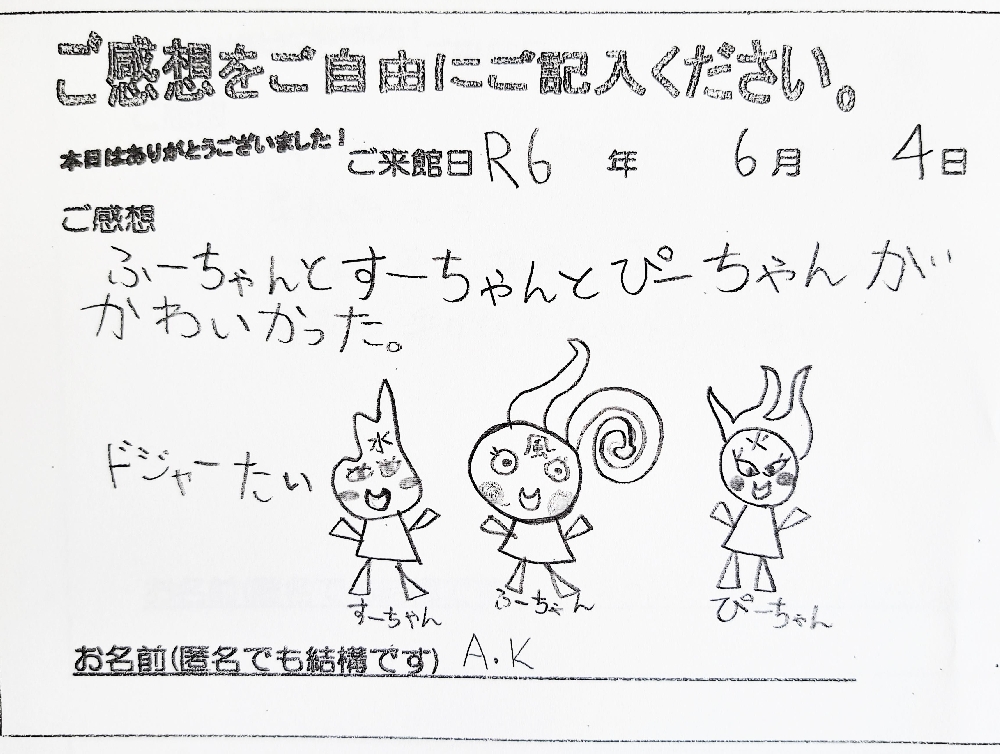 ご感想をご自由にご記入ください。
本日はありがとうございました！ ご来館日 R6 年 6月 4日
ご感想
ふーちゃんとすーちゃんとぴーちゃんが
かわいかった。
水 風 火
ドジャーたい
すーちゃん ふーちゃん ぴーちゃん
お名前(匿名でも結構です) A.K